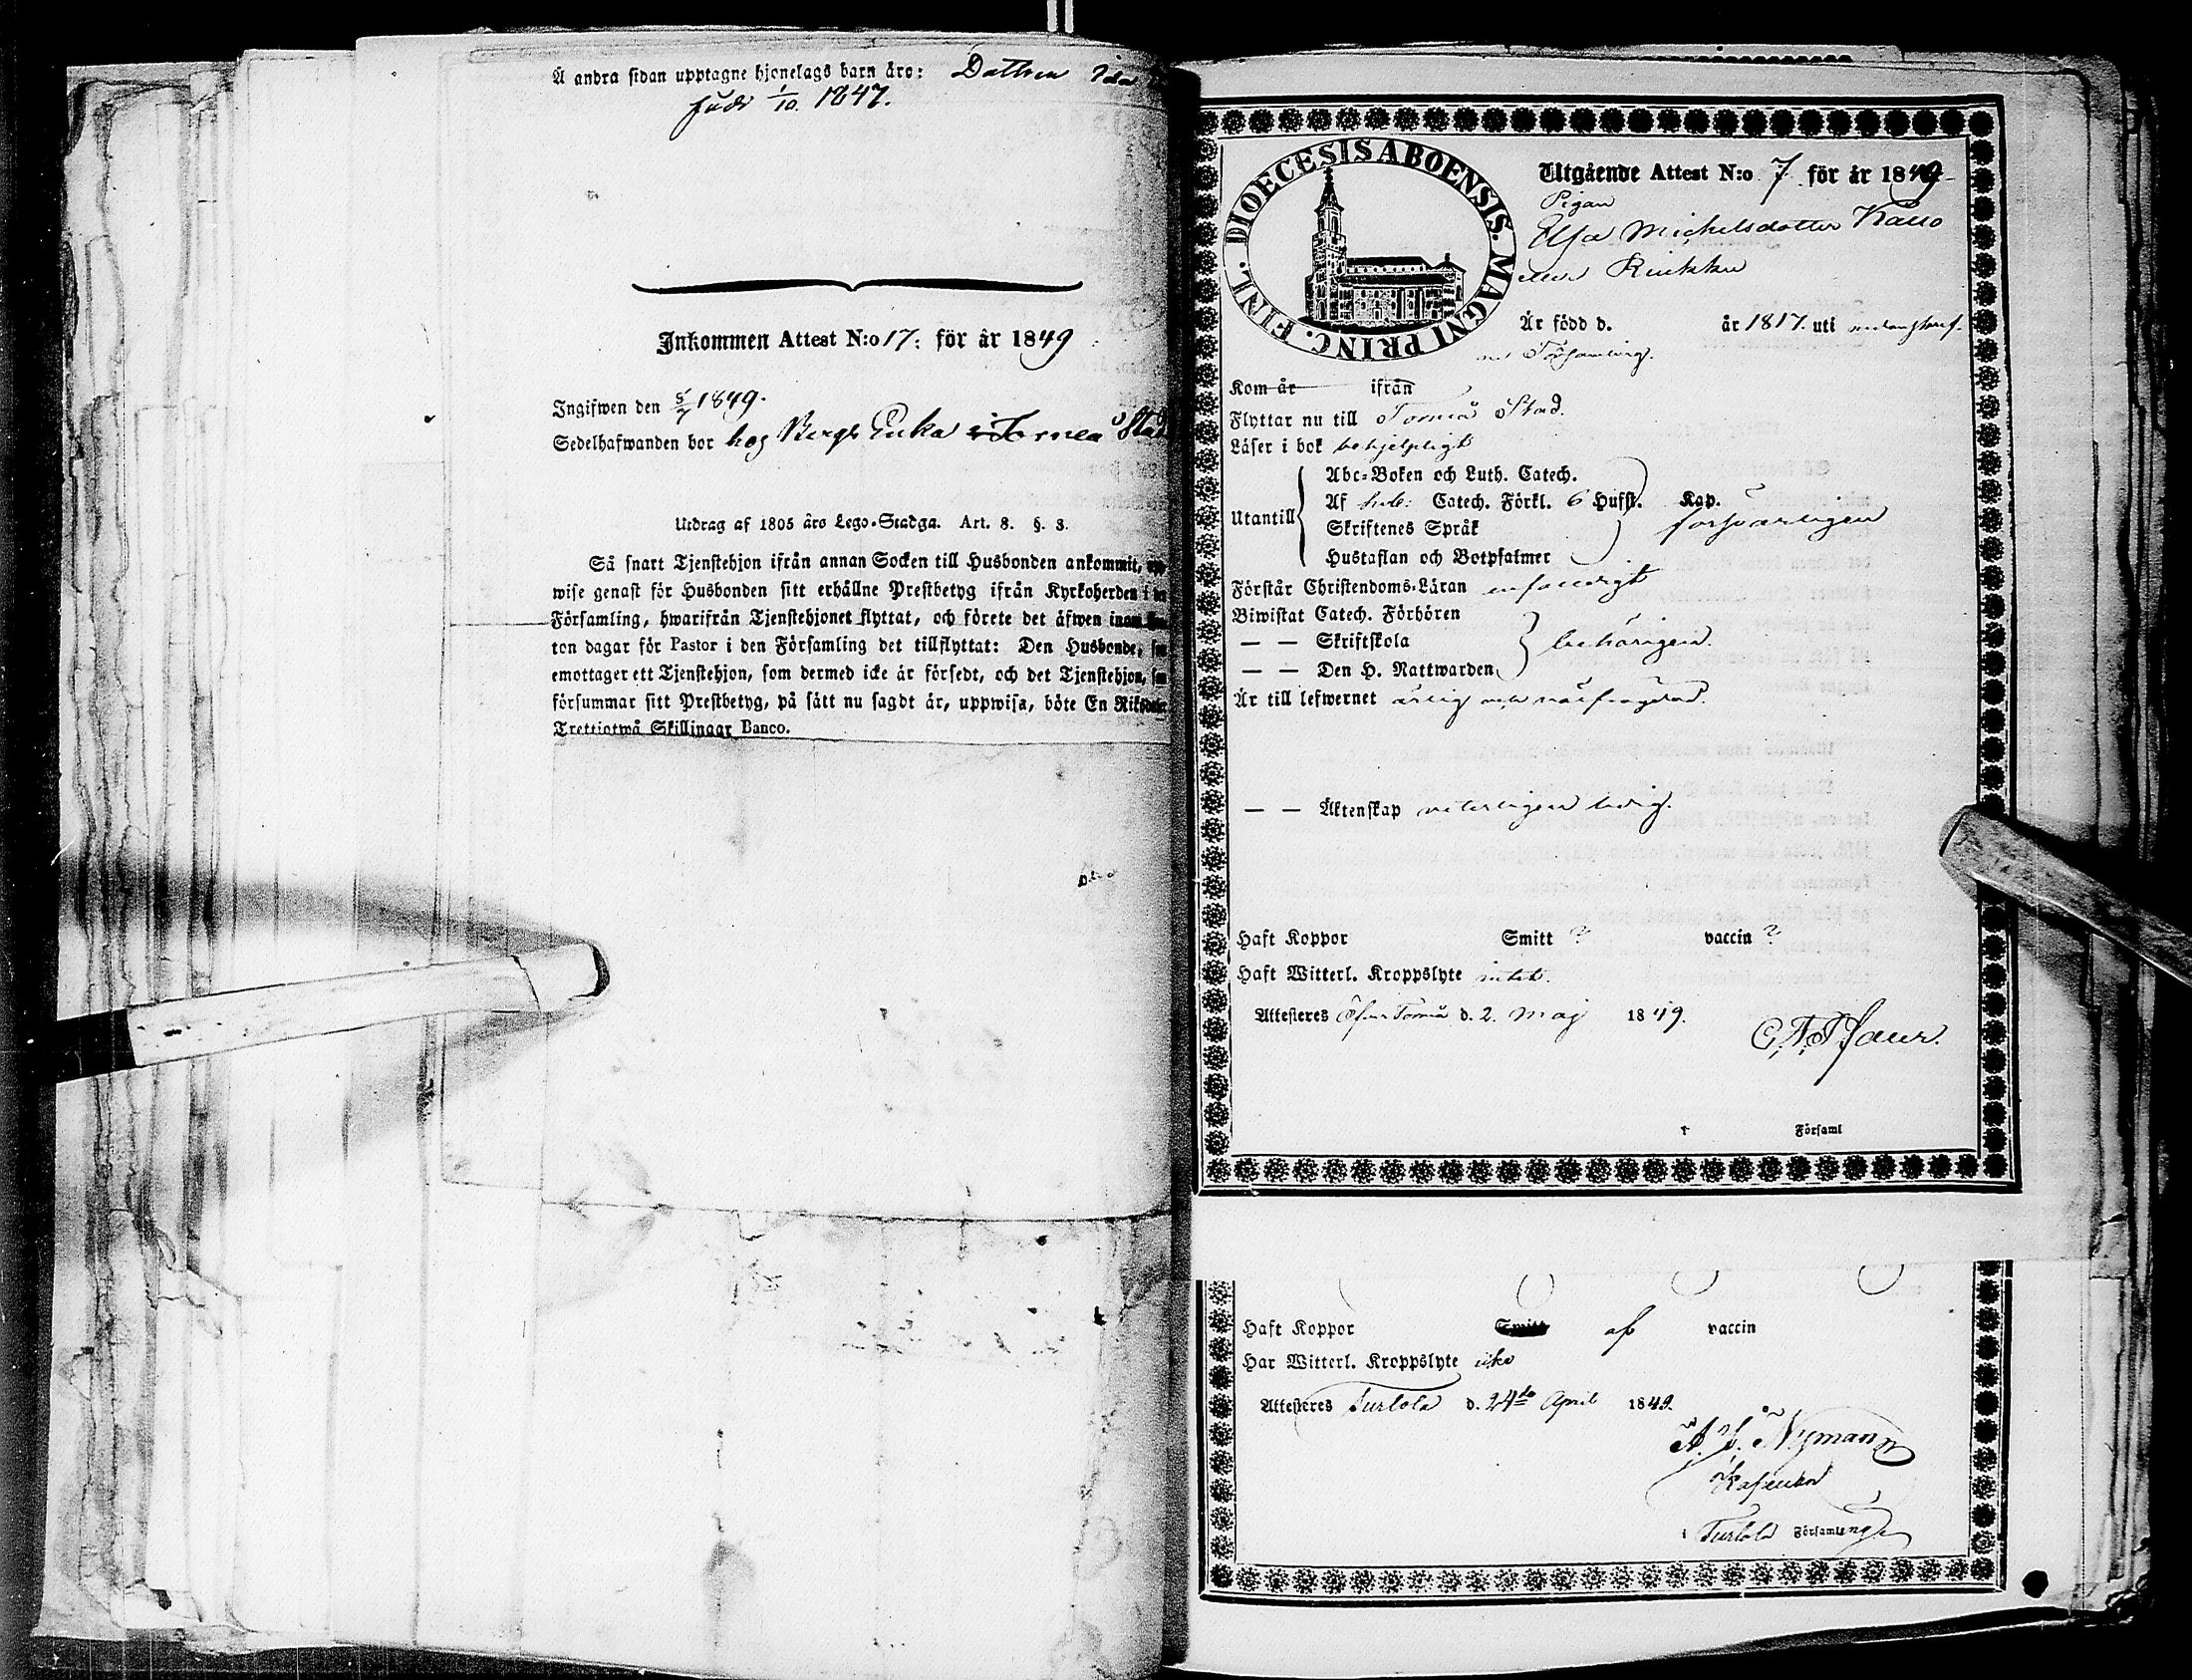 Å andra sidan upptagne hjonelags barn äro: Dottren Ida
född 1/10. 1847.
Inkommen Attest N:o 17: för år 1849
Ingifwen den 5/7 1849.
Sedelhafwanden bor hos Bergs Enka i Torneå Stad
Utdrag af 1805 års Lego-Stadga. Art. 8. §. 3.
Så snart Tjenstehjon ifrån annan Socken till Husbonden ankommit, upp-
wise genast för Husbonden sitt erhållne Prestbetyg ifrån Kyrkoherden i den
Församling, hwarifrån Tjenstehjonet flyttat, och förete det äfwen inom
ton dagar för Pastor i den Församling det tillflyttat: Den Husbonde, som
emottager ett Tjenstehjon, som dermed icke är försedt, och det Tjenstehjon, som
försummar sitt Prestbetyg, på sätt nu sagdt är, uppwisa, böte En Riksdaler
Trettiotwå Skillingar Banco.
DIOECESIS ABOENSIS. MAGNI PRINC. FINL.
Utgående Attest N:o 7. för år 1849
Pigan
Elsa Michelsdotter Kallo
eller Riukku
Är född d. år 1817. uti
Församling.
Kom år ifrån
Flyttar nu till Torneå Stad.
Läser i bok behjelpligt
Abc-Boken och Luth. Catech.
Utantill Af Catech. Förkl. 6 Hufst. Kap. försvarligen
Skriftenes Språk
Hustaflan och Botpsalmer
Förstår Christendoms-Läran enfaldigt
Biwistat Catech. Förhören
— — Skriftskola behörigen.
— — Den H. Nattwarden
Är till lefwernet ärlig och
— — Äktenskap veterligen ledig.
Haft Koppor Smitt ? vaccin ?
Haft Witterl. Kroppslyte intet.
Attesteres Öfver Torneå d. 2. Maj 1849.
i Församl
Haft Koppor Smitt af vaccin
Har Witterl. Kroppslyte icke
Attesteres Turtola d. 24de April 1849.
Nyman
i Turtola Församling